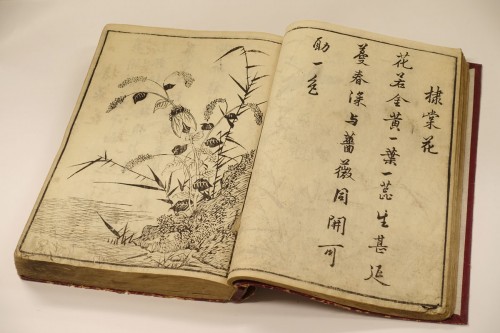 棣棠花
花若金黃一葉一蕊生甚延
蔓春深与薔薇同開可
助一色